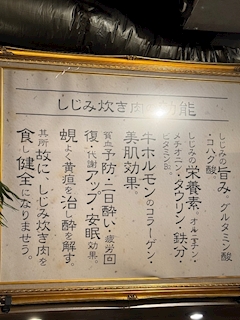 しじみ炊き肉の効能
しじみの旨み。グルタミン酸
・コハク酸
しじみの栄養素。オルニチン・
メチオニン・タウリン・鉄分・
ビタミン
牛ホルモンのコラーゲン・
美肌効果。
貧血予防・二日酔い・疲労回
復・代謝アップ・安眠効果。
蜆よく黄疸を治し酔を解す。
其所故に、しじみ炊き肉を
食し健全になりませう。